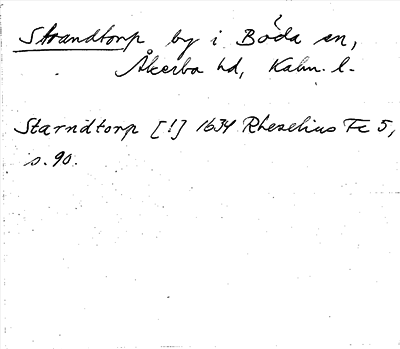 Strandtorp by i Böda sn,
Åkerbo hd, Kalm. l.
Starndtorp [!] 1634 Rhezelius Fc 5,
s. 90.